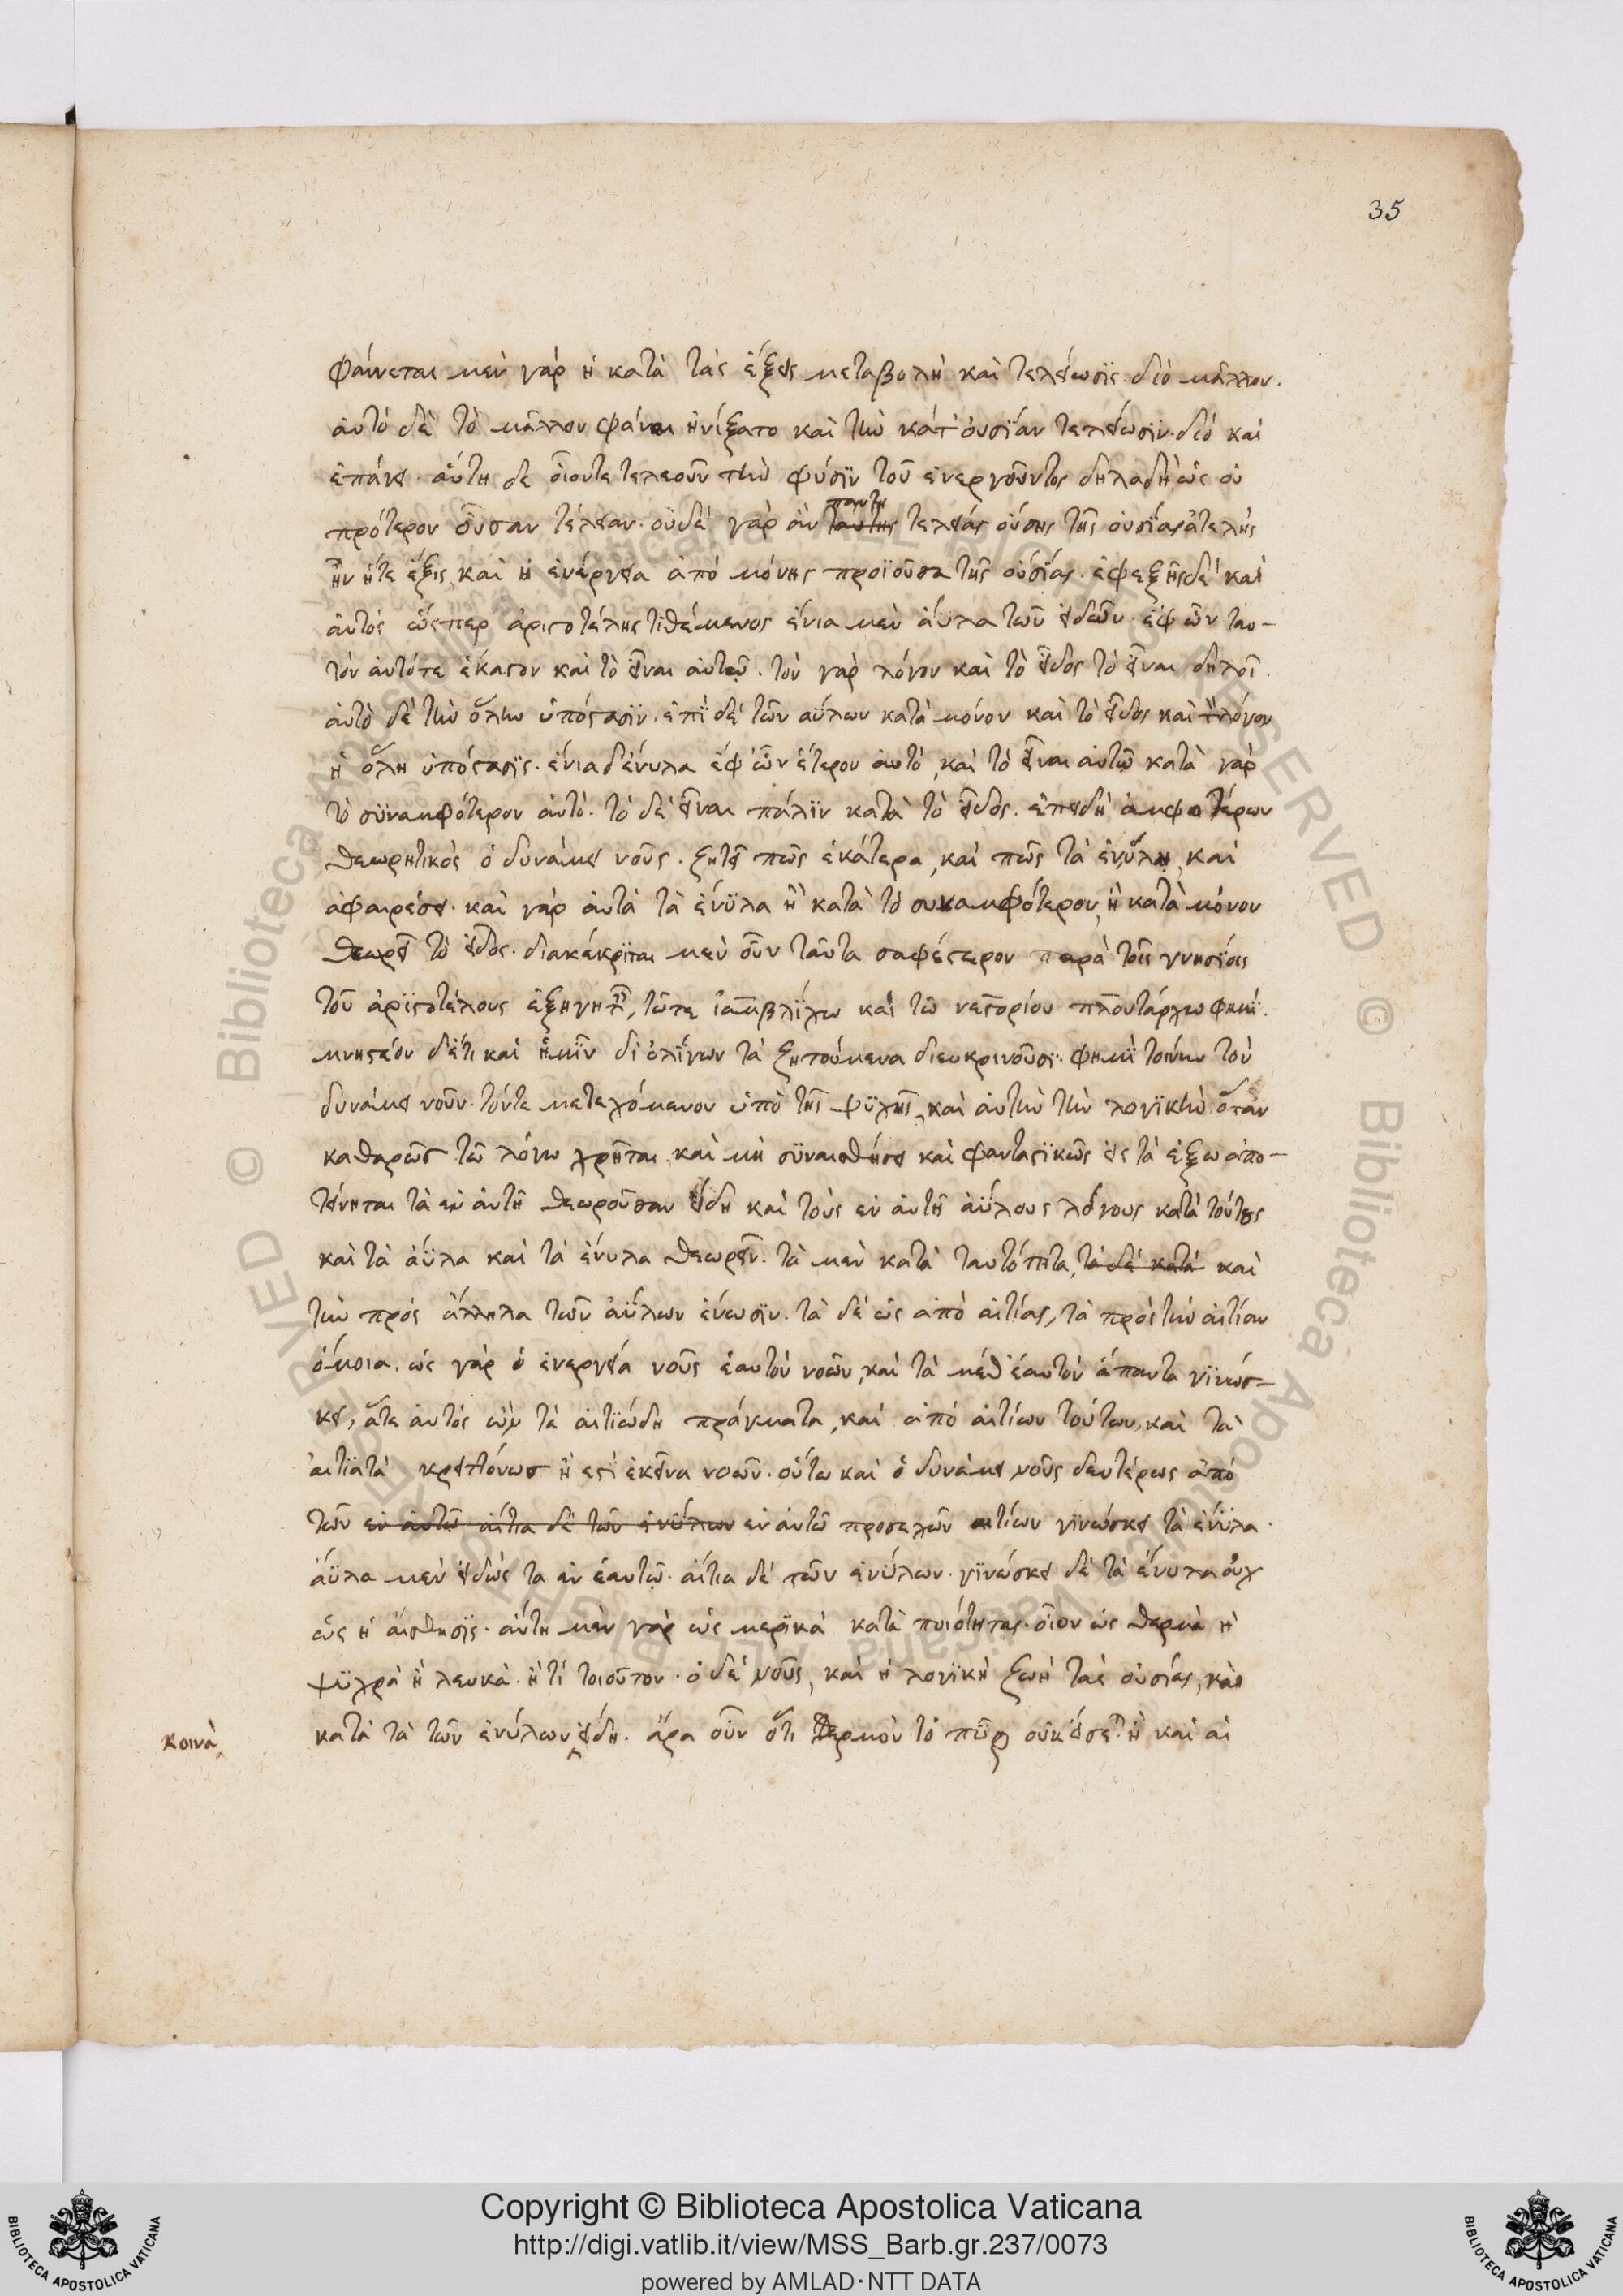 35
φαίνεται μὲν γάρ ἡ κατὰ τὰς ἕξεις μεταβολὴ καὶ τελείωσϊς. διὸ μᾶλλον.
ἀυτό δὲ τὸ μᾶλλον φάναι ἠνίξατο καὶ τὴν κάτ' ὀυσΐαν τελείωσϊν. διό καὶ
ἐπάγει. ἀύτη δε ὁῖονται τελεοῦν τὴν φύσϊν τοῦ ἐνεργοῦντος δηλαδὴ ὡς οὐ
πρότερον οὖσαν τέλειαν. οὐδέ γὰρ ἀν πάντη
ταυτης τελείας ὀύσης τῆς ὀυσΐας ἀτελὴς
ἦν ἥτε ἕξις καὶ ἡ ἐνέργεια ἀπό μόνης προϊοῦσα τῆς οὐσΐας. ἐφεξῆς δέ καὶ
ἀυτός ὥσπερ ἀριστοτέλης τιθέμενος ἔνια μεν ἄϋλα τῶν εἰδῶν. ἐφ ὧν ταυ-
τόν ἀυτότε ἕκαστον καὶ τὸ εἶναι ἀυτῷ. τὸν γαρ λόγον καὶ τὸ εἶδος τὸ εἶναι δηλοῖ.
ἀυτὸ δὲ τὴν ὅλην ὑπόστασϊν. ἐπϊ δέ τῶν αΰλων κατὰ μόνον καὶ τὸ εἶδος καὶ τὸν λόγον
ἡ ὅλη ὑπόστασϊς. ἔνια δ' ἔνυλα ἐφ ὧν ἕτερον ἀυτό, καὶ τὸ εἶναι αὐτῷ κατὰ γάρ
τὸ σϋναμφότερον ἀυτό. τὸ δὲ εἶναι πάλϊν κατὰ τὸ εἶδος. ἐπειδὴ ἀμφοτέρων
θεωρητικὸς ὁ δυνάμει νοῦς. ζητεῖ πῶς ἑκάτερα, καὶ πῶς τὰ ἐνύλη, καὶ
ἀφαιρέσει. καὶ γάρ ἀυτὰ τὰ ἔνϋλα ἢ κατὰ τὸ συναμφότερον, ἢ κατὰ μόνον
θεωρεῖ τὸ εἶδος. διακέκρϊται μεν οὖν ταῦτα σαφέστερον παρὰ τοῖς γνησΐοις
τοῦ ἀρϊστοτέλους ἐξηγηταῖς, τῶτε ἰαμβλΐχω καὶ τῶ νεστορίου πλουτάρχω φημϊ.
μνηστέον δ' ἔτι καὶ ἡμῖν δι ὀλίγων τὰ ζητούμενα διευκρινοῦσϊ. φημϊ τοίνυν τὸν
δυνάμει νοῦν. τόντε μετεχόμενον ὑπὸ τῆς ψϋχῆς, καὶ ἀυτὴν τὴν λογϊκὴν. ὅταν
καθαρῶς τῶ λόγω χρῆται καὶ μὴ σϋναισθήσει καὶ φανταστϊκῶς εἰς τὰ ἔξω ἀπο-
τείνηται τὰ εν ἀυτῆ θεωροῦσαν εἴδη καὶ τοὺς εν ἀυτῆ ἀΰλους λόγους κατὰ τούτους
καὶ τὰ ἄϋλα καὶ τὰ ἔνυλα θεωρεῖν. τὰ μεν κατὰ ταυτότητα, τὰ δέ κατὰ καὶ
τὴν πρός ἄλληλα τῶν ἀΰλων ἕνωσϊν. τὰ δέ ὡς ἀπὸ αἰτίας, τὰ πρός τὴν ἀιτίαν
ὅμοια. ὡς γὰρ ὁ ἐνεργεία νοῦς ἑαυτὸν νοῶν, καὶ τὰ μέθ' ἑαυτόν ἅπαντα γϊνώσ-
κει, ἅτε ἀυτός ὢν τὰ ἀιτϊώδη πράγματα, καὶ ἀπὸ ἀιτίων τούτων, καὶ τὰ
ἀιτϊατὰ κρειττόνως ἢ εστὶ ἐκεῖνα νοῶν. οὕτω καὶ ὁ δυνάμει νοῦς δευτέρως ἀπὸ
τῶν εν ἀυτῶ αἴτια δὲ τῶν ἐνΰλων εν ἀυτῶ προσεχῶν αιτίων γϊνώσκει τὰ ἔνϋλα.
ἄϋλα μεν εἰδὼς τα εν ἑαυτῷ. ἀίτια δέ τῶν ἐνΰλων. γϊνώσκει δὲ τὰ ἔνυλα οὐχ
ὡς ἡ ἄισθησϊς. ἀύτη μὲν γάρ ὡς μερϊκὰ κατὰ ποιότητας. οἷον ὡς θερμὰ ἢ
ψϋχρὰ ἢ λευκὰ. ἢ τί τοιοῦτον. ὁ δέ νοῦς, καὶ ἡ λογϊκὴ ζωὴ τὰς ὀυσίας, καὶ
κατὰ τὰ τῶν ἐνύλων εἴδη. ἆρα οὖν ὅτι θερμὸν τὸ πῦρ οὐκ εἴσεται ἢ καὶ αἱ
κοινὰ